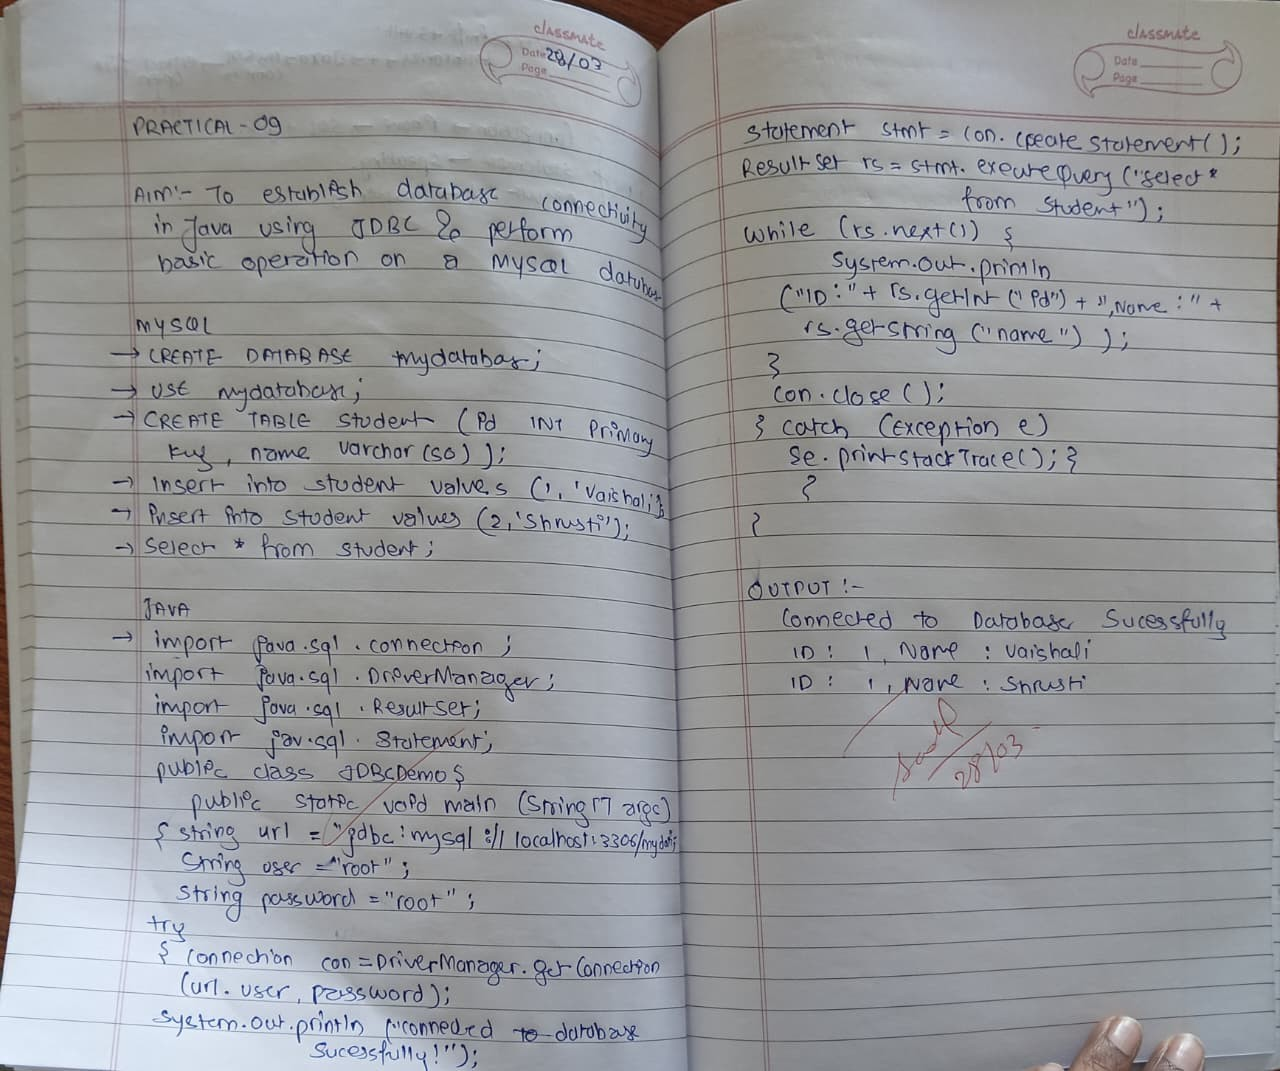 classmate
Date 28/03
Page
PRACTICAL - 09
Aim:- To establish database connectivity
in Java using JDBC & perform
basic operation on a MySQL databas
MySQL
→ CREATE DATABASE mydatabas;
→ USE mydatabase;
→ CREATE TABLE student (id INT Primary
key, name varchar(50));
→ Insert into student values (1, 'Vaishali');
→ insert into student values (2, 'Shrusti');
→ Select * from student;
JAVA
→ import java.sql.connection;
import java.sql.DriverManager;
import java.sql.Resultset;
import jav.sql.Statement;
public class JDBCDemo {
public static void main (String [] args)
{ string url = "jdbc:mysql://localhost:3306/mydat;
String user = "root";
String password = "root";
try
{ connection con = DriverManager.getConnection
(url. user, password);
System.out.println ("connected to database
Sucessfully!");
classmate
Date
Page
Statement stmt = con.createstatement();
Resultset rs = stmt.executeQuery ("select *
from student");
while (rs.next()) {
System.out.println
("ID:" + rs.getInt ("id") + ", Name:" +
rs.getstring ("name"));
}
con.close();
} catch (Exception e)
se.printstackTrace(); }
}
}
OUTPUT :-
Connected to Database Sucessfully
ID : 1, Name : Vaishali
ID : 1, Name : Shrusti
28/03